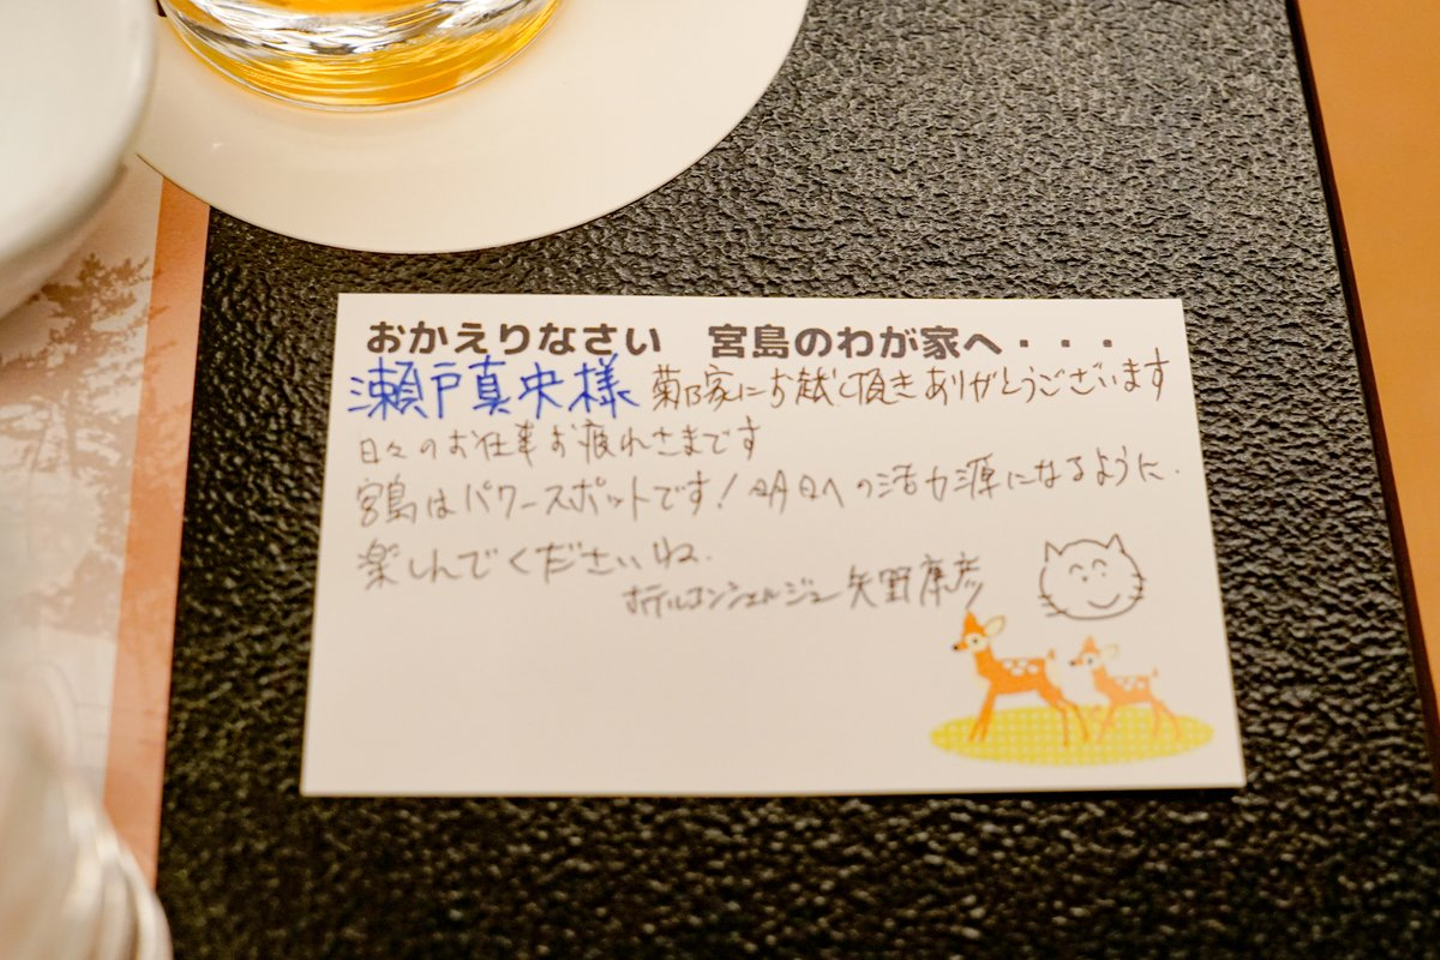 おかえりなさい　宮島のわが家へ・・・
瀬戸真央様 菊乃家にお越し頂きありがとうございます
日々のお仕事お疲れさまです
宮島はパワースポットです！明日への活力源になるように.
楽しんでくださいね.
ホテルコンシェルジュ 矢野康彦